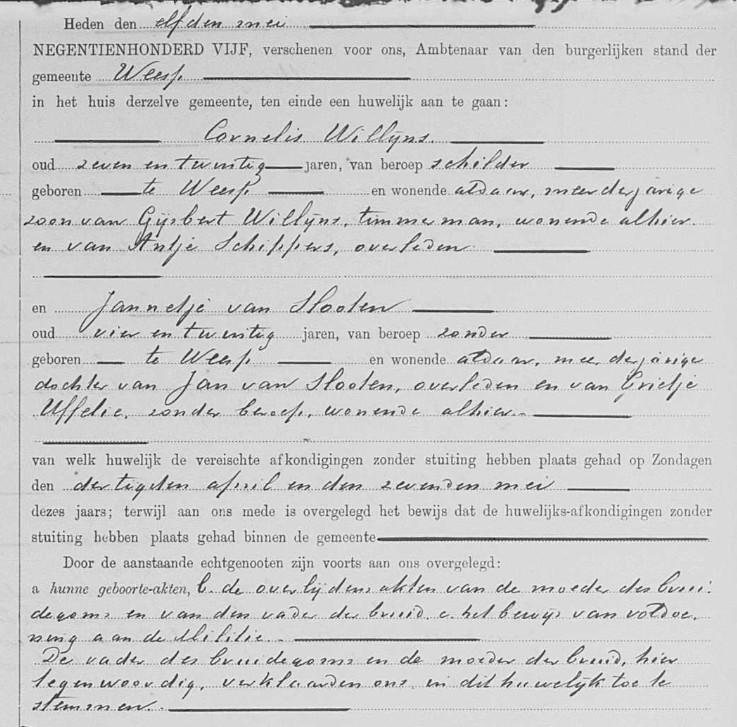 Heden den elfden mei
NEGENTIENHONDERD VIJF, verschenen voor ons, Ambtenaar van den burgerlijken stand der
gemeente Weesp
in het huis derzelve gemeente, ten einde een huwelijk aan te gaan:
Cornelis Willijns.
oud zeven en twintig jaren, van beroep schilder
geboren te Weesp en wonende aldaar, meerderjarige
zoon van Gijsbert Willijns, timmerman, wonende alhier.
en van Antje Schippers, overleden
en Jannetje van Slooten
oud vier en twintig jaren, van beroep zonder
geboren te Weesp en wonende aldaar, meerderjarige
dochter van Jan van Slooten, overleden en van Grietje
Uffelie, zonder beroep, wonende alhier.
van welk huwelijk de vereischte afkondigingen zonder stuiting hebben plaats gehad op Zondagen
den dertigsten april en den zevenden mei
dezes jaars; terwijl aan ons mede is overgelegd het bewijs dat de huwelijks-afkondigingen zonder
stuiting hebben plaats gehad binnen de gemeente
Door de aanstaande echtgenooten zijn voorts aan ons overgelegd:
a hunne geboorte-akten, b. de overlijdensakten van de moeder des brui-
degoms en van den vader der bruid. c. het bewijs van voldoe-
ning aan de Militie.
De vader des bruidegoms en de moeder der bruid, hier
tegenwoordig, verklaarden ons in dit huwelijk toe te
stemmen.